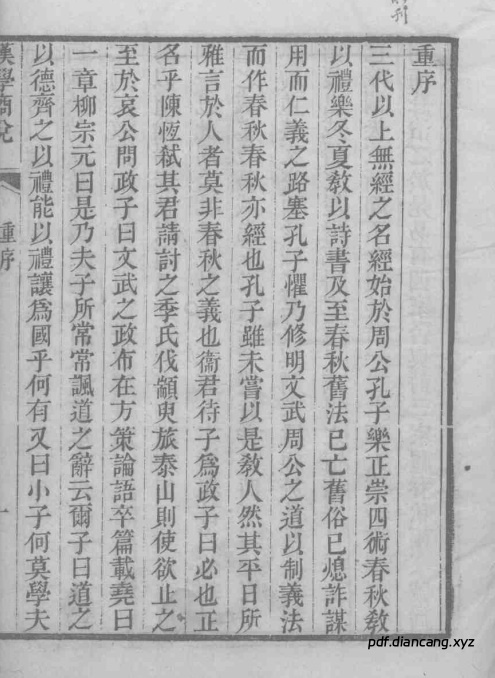 刊
重序
三代以上無經之名經始於周公孔子樂正崇四術春秋敎
以禮樂冬夏敎以詩書及至春秋舊法已亡舊俗已熄詐謀
用而仁義之路塞孔子懼乃修明文武周公之道以制義法
而作春秋春秋亦經也孔子雖未嘗以是敎人然其平日所
雅言於人者莫非春秋之義也衞君待子爲政子曰必也正
名乎陳恆弑其君請討之季氏伐顓臾旅泰山則使欲止之
至於哀公問政子曰文武之政布在方策論語卒篇載堯曰
一章柳宗元曰是乃夫子所常常諷道之辭云爾子曰道之
以德齊之以禮能以禮讓爲國乎何有又曰小子何莫學夫
漢學商兌
重序
一
pdf.diancang.xyz